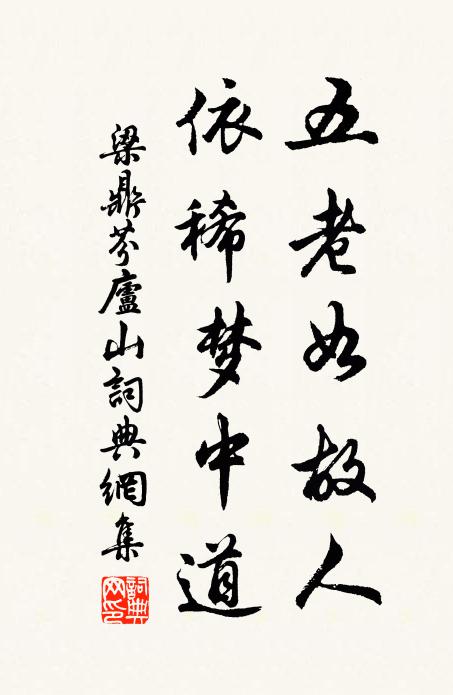 五老如故人
依稀梦中道
梁鼎芬廬山詞典網集
詞典网印